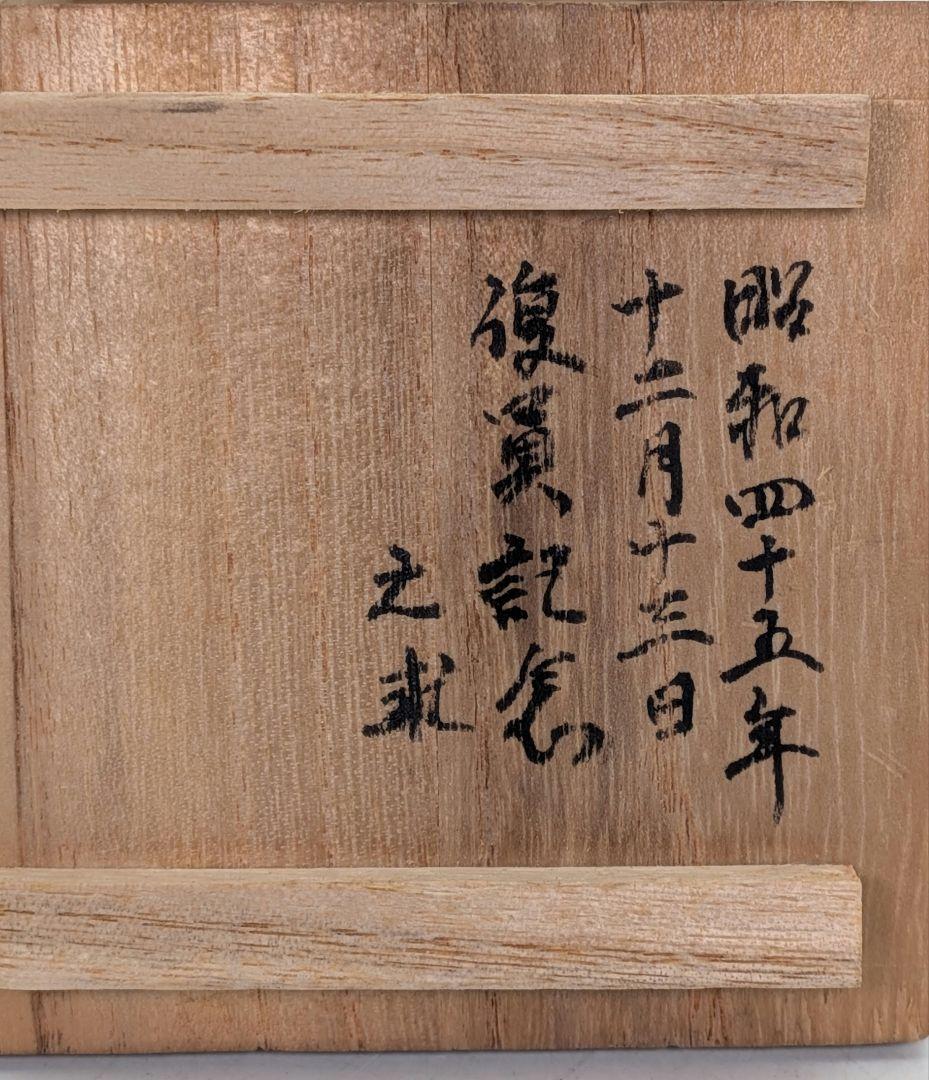 昭和四十五年
十二月十三日
復員記念
之